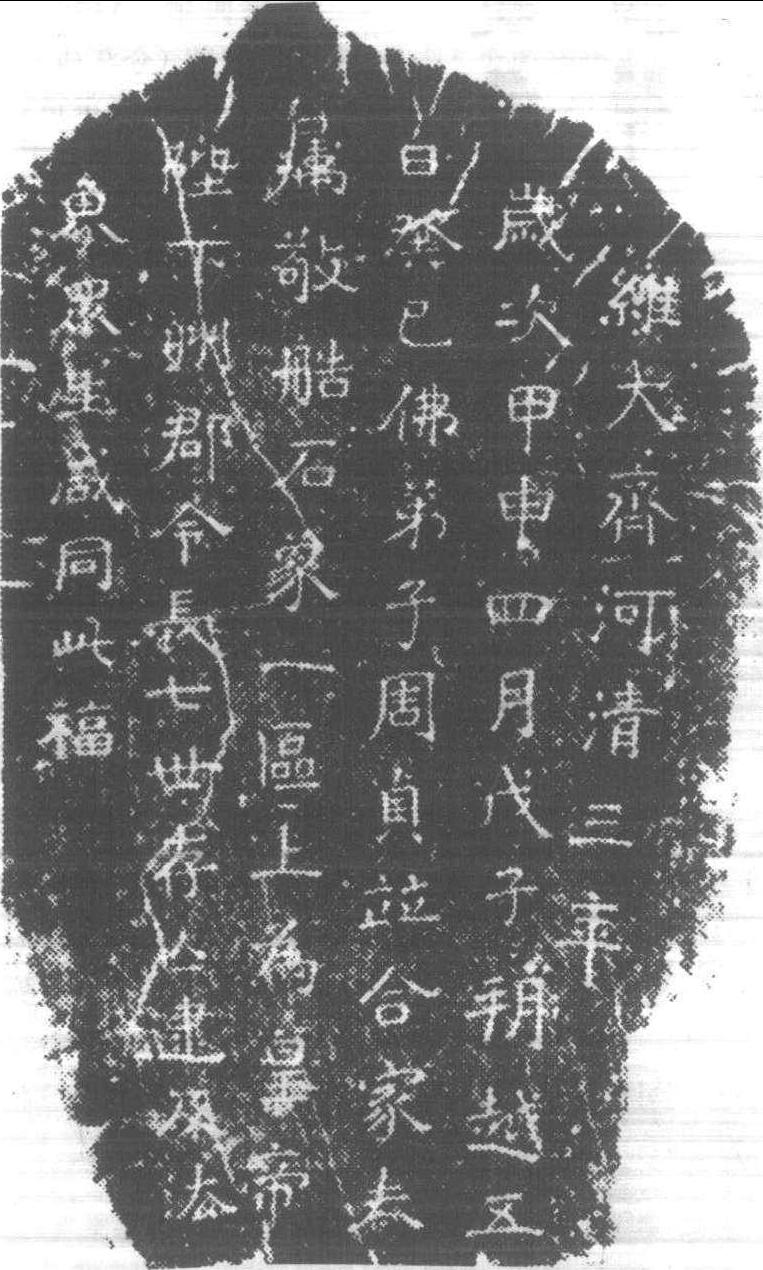 維大齊河清三年
歲次甲申四月戊子朔越五
日癸巳佛弟子周貞並合家
属敬艁石象一區上為皇帝
陛下州郡令長七世存亡逮及法
界眾生咸同此福